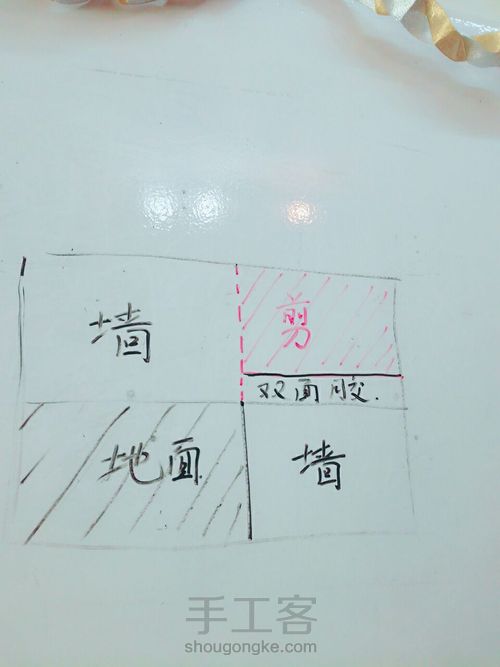 墙 剪
双面胶.
地面 墙
手工客
shougongke.com